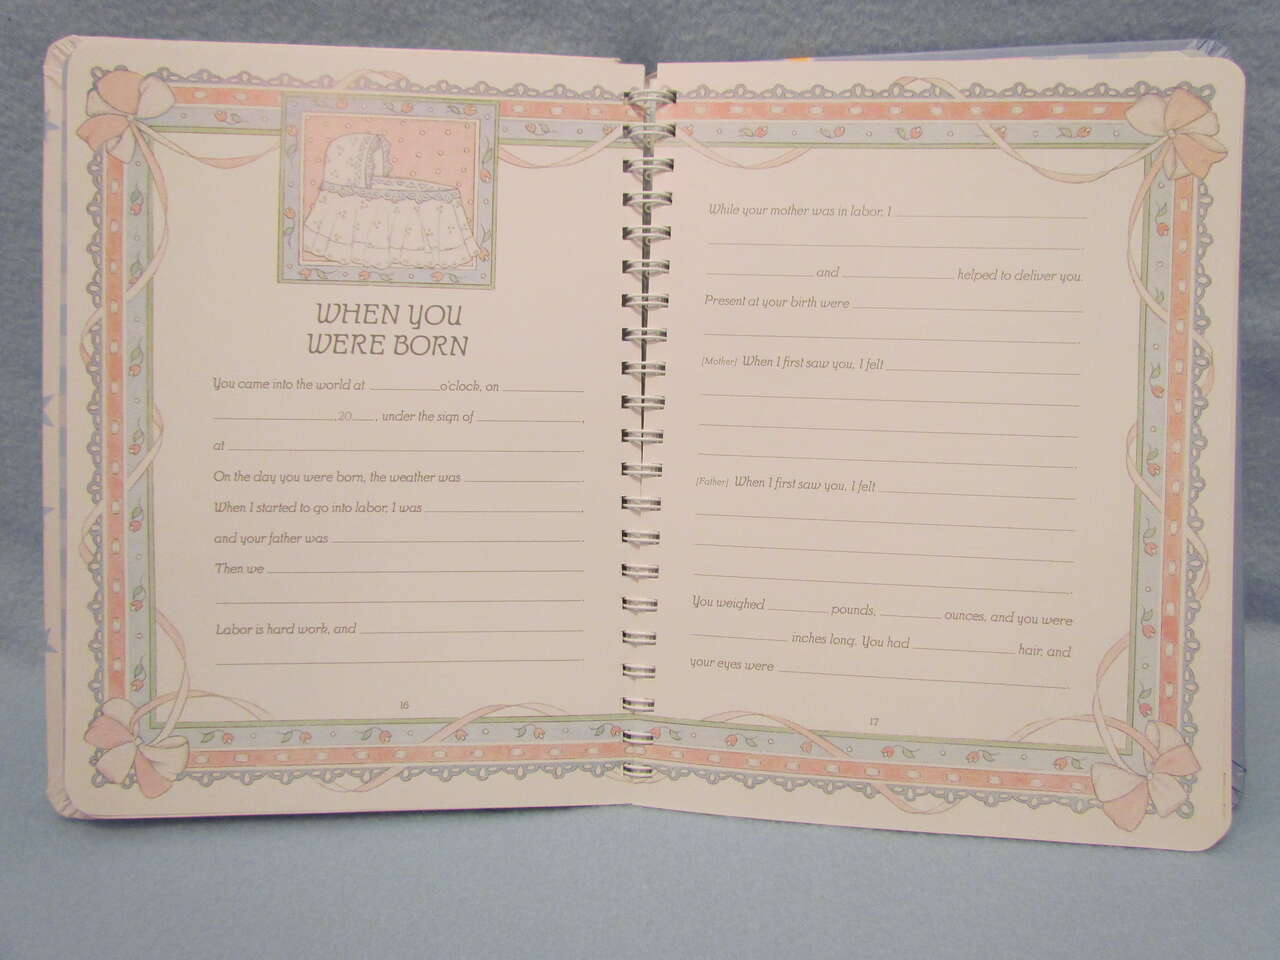 WHEN YOU
WERE BORN
You came into the world at ________ o'clock, on ________
________, 20____, under the sign of ________,
at ________.
On the day you were born, the weather was ________.
When I started to go into labor, I was ________,
and your father was ________.
Then we ________
________.
Labor is hard work, and ________
________.
16
While your mother was in labor, I ________
________.
________ and ________ helped to deliver you.
Present at your birth were ________
________.
[Mother] When I first saw you, I felt ________
________
________
________.
[Father] When I first saw you, I felt ________
________
________
________.
You weighed ________ pounds, ________ ounces, and you were
________ inches long. You had ________ hair, and
your eyes were ________.
17